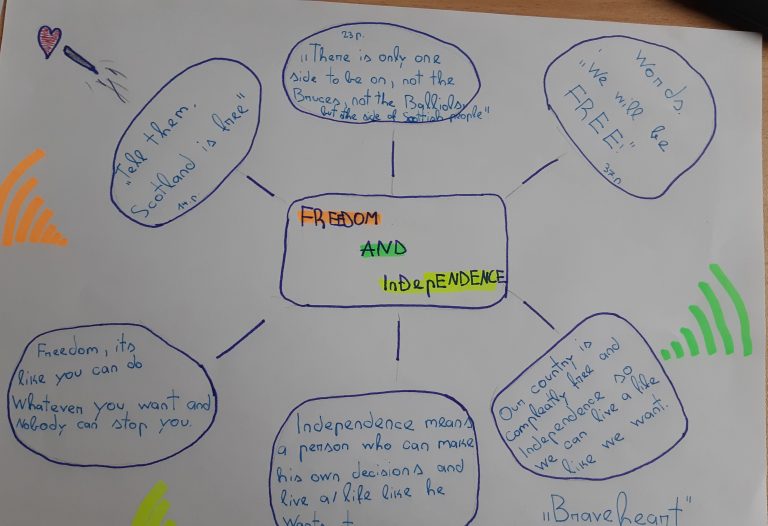 "Tell them.
Scotland is free"
14 p.
23 p.
„There is only one
side to be on, not the
Bruces, not the Balliols,
but the side of Scottish people"
Words.
„We will be
FREE!"
37p.
FREEDOM
AND
InDepENDENCE
Freedom, its
like you can do
Whatever you want and
Nobody can stop you.
Independence means
a person who can make
his own decisions and
live a life like he
wants t
Our country is
compleatly free and
Independence so
we can live a life
like we want.
„Braveheart"